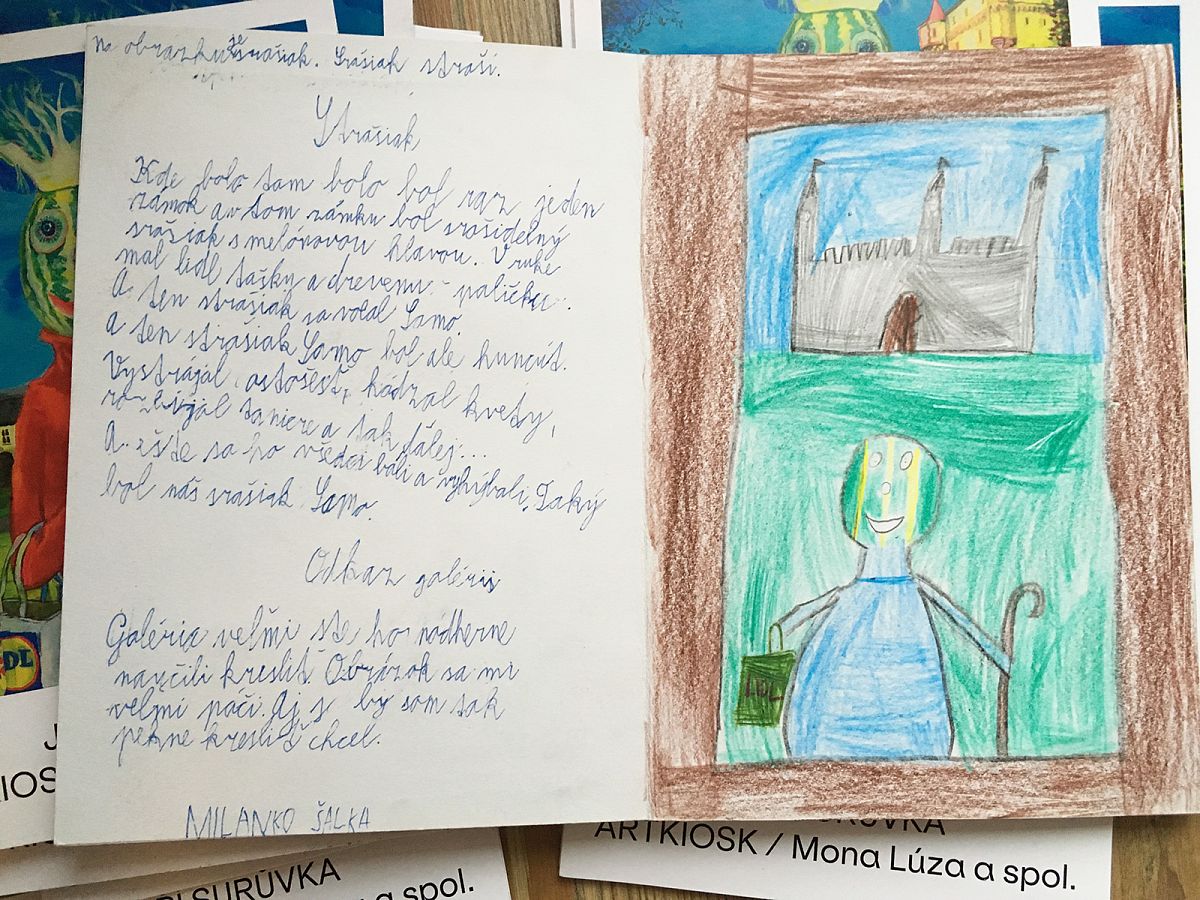 Na obrazku je strašiak. Srašiak straši.
Strašiak
Kde bolo tam bolo bol raz jeden
zámok a v tom zámku bol srašidelný
srašiak s melónovou hlavou. V ruke
mal lidl tašku a drevenu paličku.
A ten strašiak sa volal Samo.
A ten strašiak Samo bol ale huncút.
Vystrájal ostošesť, hádzal kvety,
rozbíjal taniere a tak ďálej...
A ešte sa ho všedci báli a vyhýbali. Taký
bol náš srašiak Samo.
Odkaz galérii
Galéria velmi ste ho nádherne
naučili kresliť. Obrázok sa mi
veľmi páči. Aj by som tak
pekne kresliť chcel.
MILANKO ŠALKA
LIDL
DL
J
KIOS
SURŮVKA
a spol.
URŮVKA
ARTKIOSK / Mona Lúza a spol.